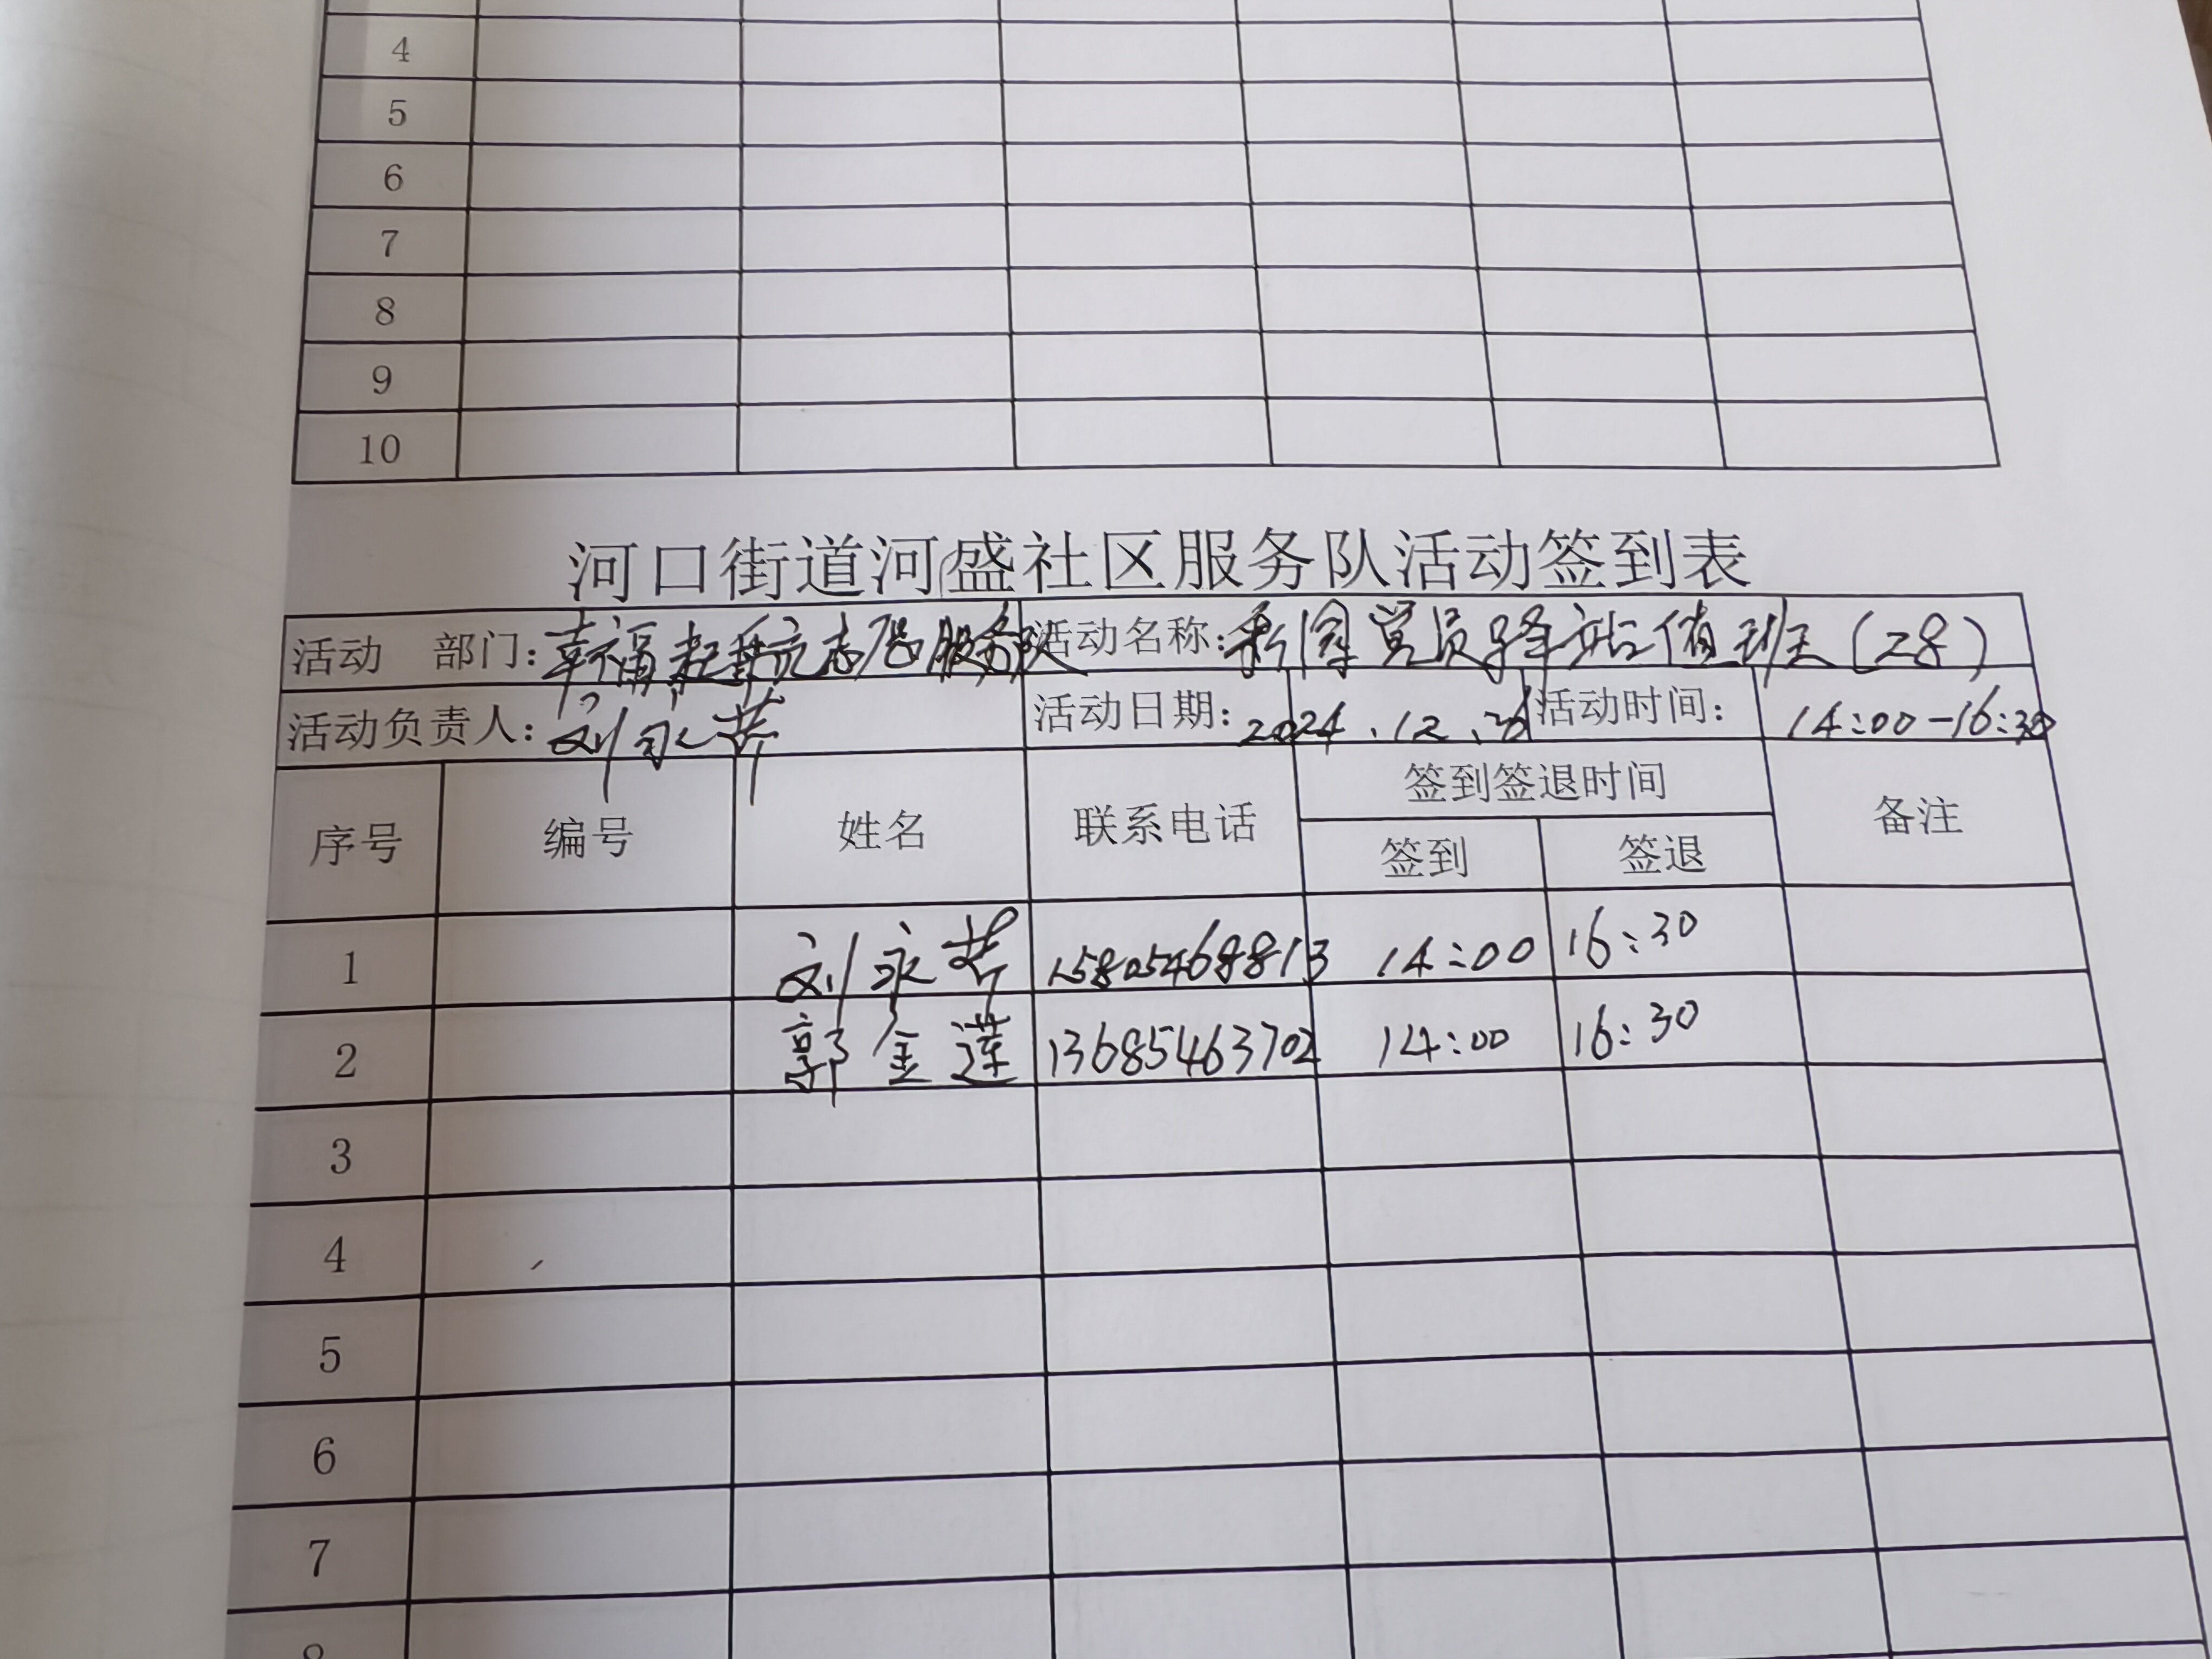 4
5
6
7
8
9
10
河口街道河盛社区服务队活动签到表
活动 部门：幸福起航志愿服务队 活动名称：党员驿站值班(28)
活动负责人：刘永 活动日期：2024.12.26 活动时间：14:00-16:30
序号 编号 姓名 联系电话 签到签退时间 备注
签到 签退
1 刘永 15805468813 14:00 16:30
2 郭金莲 13685463702 14:00 16:30
3
4
5
6
7
8